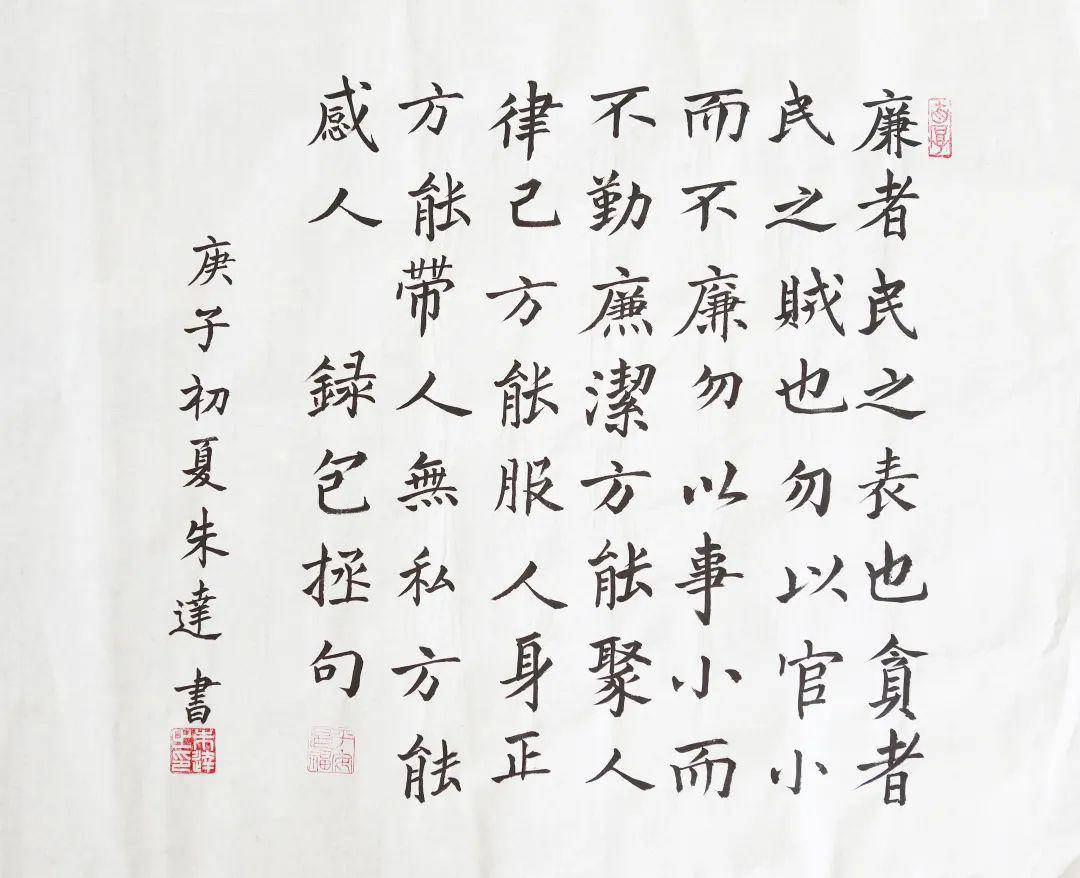 廉者民之表也貪者
民之賊也勿以官小
而不廉勿以事小而
不勤廉潔方能聚人
律己方能服人身正
方能带人無私方能
感人 録包拯句
平安是福
庚子初夏朱達書